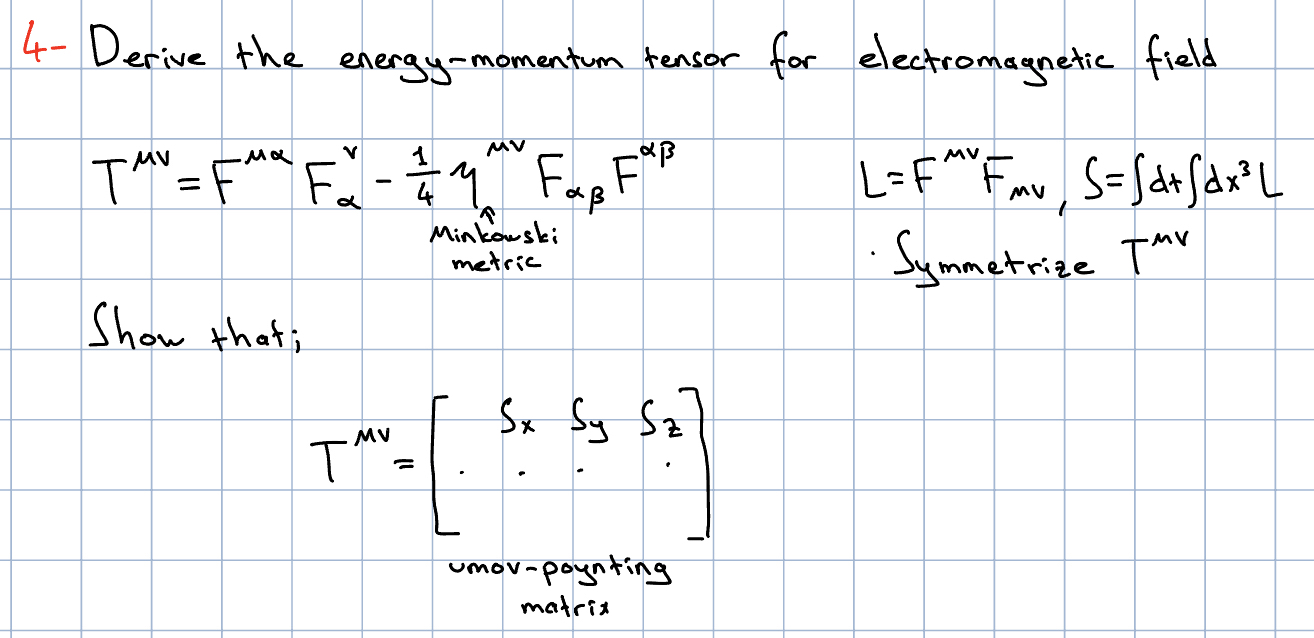 4- Derive the energy-momentum tensor for electromagnetic field
T^{μν} = F^{μα} F_α^ν - 1/4 η^{μν} F_{αβ} F^{αβ}
Minkowski
metric
L = F^{μν} F_{μν}, S = ∫dt ∫dx³ L
· Symmetrize T^{μν}
Show that;
T^{μν} = [ Sx Sy Sz
. . . . ]
umov-poynting
matrix